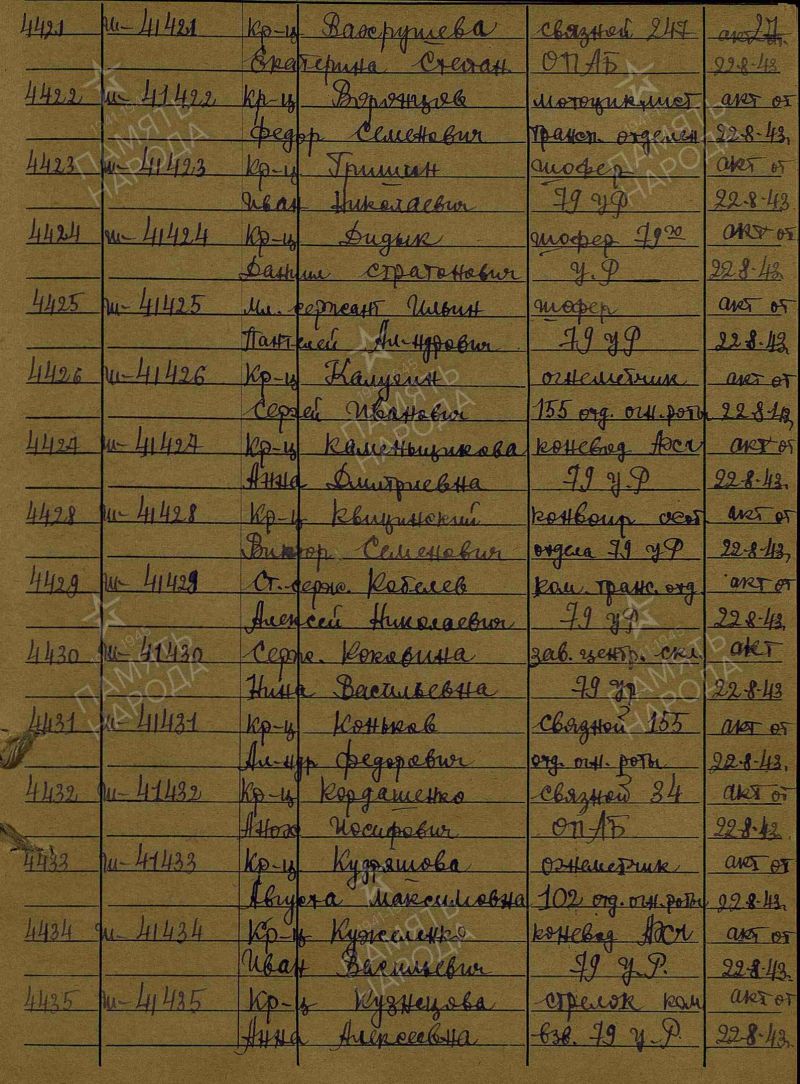 4421 Ш-41421 Кр-ц Вахрушева связной 247 27 акт от
Екатерина Степан ОПАБ 22-8-43
4422 Ш-41422 Кр-ц Воронцов мотоциклист акт от
Федор Семенович трансп. отделен 22-8-43,
4423 Ш-41423 Кр-ц Гришин шофер акт от
Иван Николаевич 79 УР 22-8-43
4424 Ш-41424 Кр-ц Дидык шофер 79го акт от
Даниил Стратонович У.Р 22-8-43
4425 Ш-41425 Мл. сержант Ильин шофер акт от
Пантелей Ал-ндрович 79 УР 22-8-43,
4426 Ш-41426 Кр-ц Калугин огнеметчик акт от
Сергей Иванович 155 отд. огн. роты
4427 Ш-41427 Кр-ц Каменьщикова коневод АХЧ акт от
Анна Дмитриевна 79 У.Р 22-8-43,
4428 Ш-41428 Кр-ц Квицинский конвоир акт от
Виктор Семенович отдела 79 УР 22-8-43,
4429 Ш-41429 Ст. серж. Кобелев ком. транс. отд. акт от
Алексей Николаевич 79 УР 22-8-43,
4430 Ш-41430 Серж. Коковина зав. центр. скл. акт
Нина Васильевна 79 ур 22-8-43
4431 Ш-41431 Кр-ц Коньков связной 155 акт от
Ал-ндр Федорович отд. огн. роты 22-8-43,
4432 Ш-41432 Кр-ц Кордашенко связной 34 акт от
Иосифович ОПАБ 22-8-43
4433 Ш-41433 Кр-ц Кудряшова огнеметчик акт от
Августа Максимовна 102 отд. огн. роты 22-8-43,
4434 Ш-41434 Кр-ц Кужеленко коневод АХЧ акт от
Иван Васильевич 79 У.Р. 22-8-43,
4435 Ш-41435 Кр-ц Кузнецова стрелок ком акт от
Анна Алексеевна взв. 79 У.Р 22-8-43,